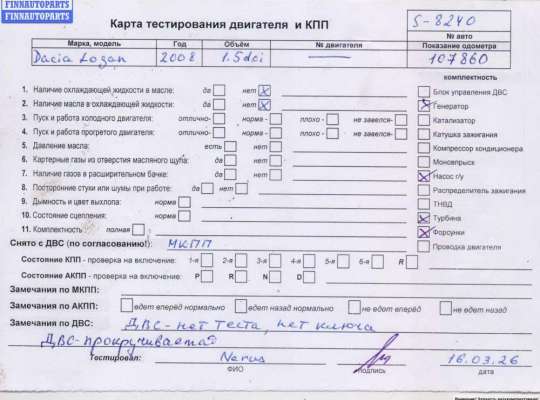 FINNAUTOPARTS
FINNAUTOPARTS
Карта тестирования двигателя и КПП
S-8240
№ авто
Марка, модель Год Объём № двигателя Показание одометра
Dacia Logan 2008 1.5dci — 107860
комплектность
1. Наличие охлаждающей жидкости в масле: да нет
2. Наличие масла в охлаждающей жидкости: да нет
3. Пуск и работа холодного двигателя: отлично- норма - плохо - не завелся-
4. Пуск и работа прогретого двигателя: отлично- норма - плохо - не завелся-
5. Давление масла: есть нет
6. Картерные газы из отверстия масляного щупа: да нет
7. Наличие газов в расширительном бачке: да нет
8. Посторонние стуки или шумы при работе: да нет
9. Дымность и цвет выхлопа: норма
10. Состояние сцепления: норма
11. Комплектность полная
Блок управления ДВС
Генератор
Катализатор
Катушка зажигания
Компрессор кондиционера
Моновпрыск
Насос г/у
Распределитель зажигания
ТНВД
Турбина
Форсунки
Проводка двигателя
Снято с ДВС (по согласованию!): МКПП
Состояние КПП - проверка на включение: 1-я 2-я 3-я 4-я 5-я 6-я R
Состояние АКПП - проверка на включение: P R N D
Замечания по МКПП:
Замечания по АКПП: едет вперёд нормально едет назад нормально не едет вперёд не едет назад
Замечания по ДВС: ДВС-нет теста, нет ключа
ДВС-прокручивается
Тестировал: Nerus 16.03.26
ФИО подпись дата